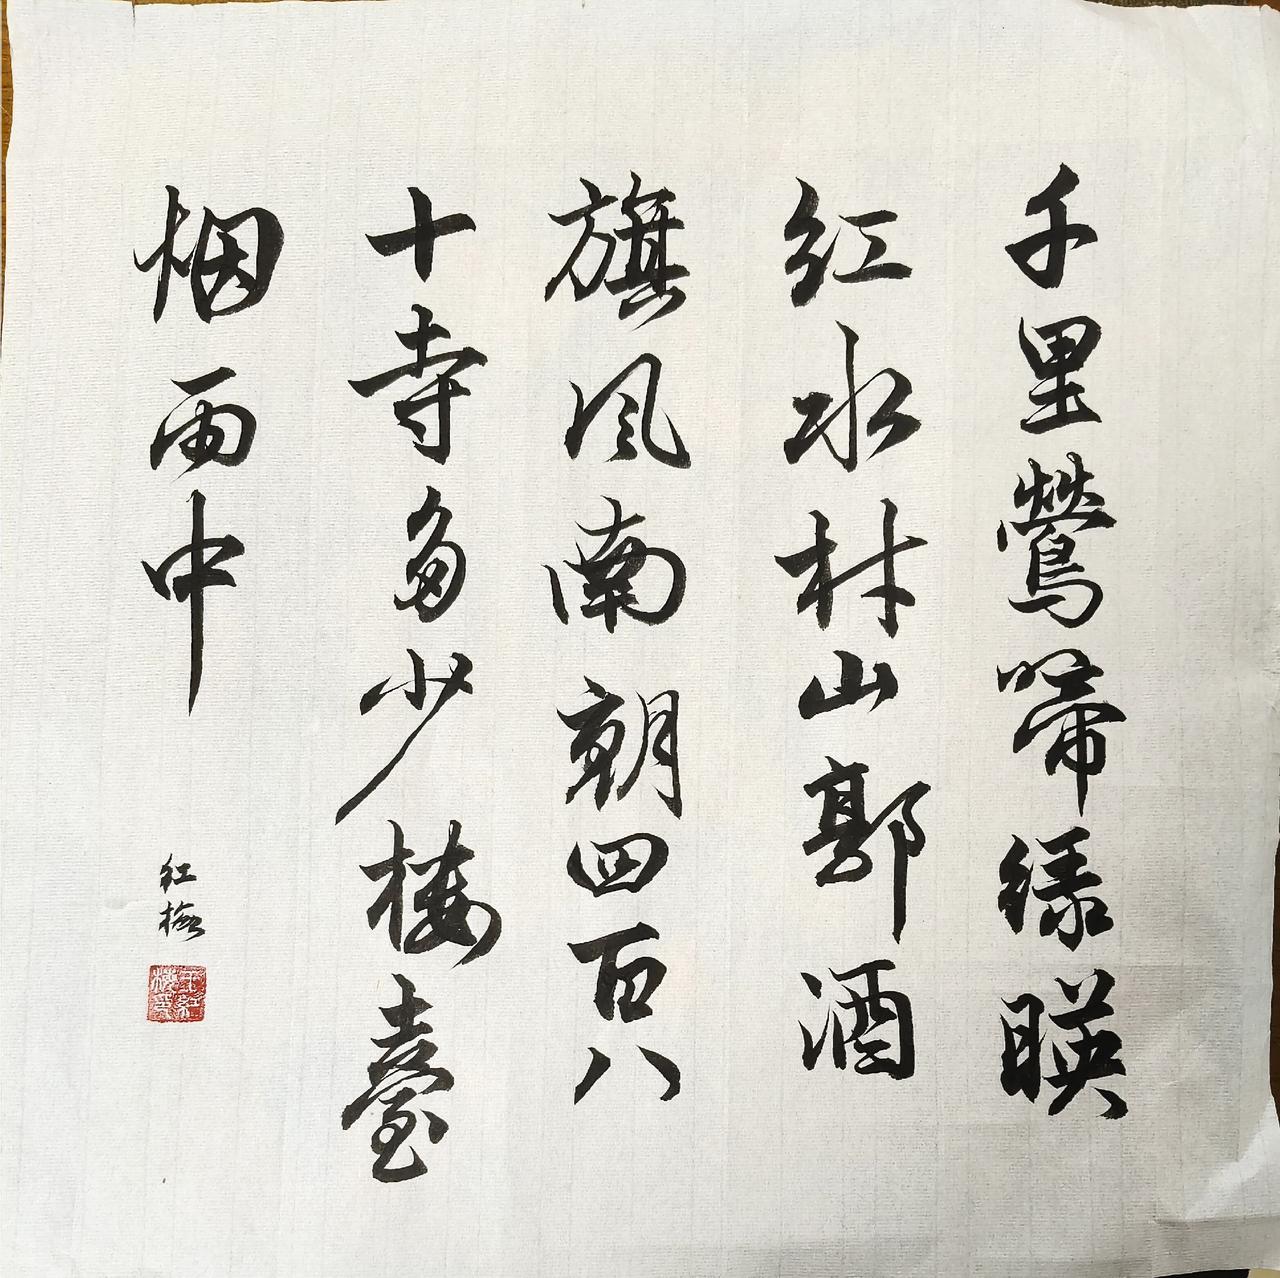 千里鶯啼綠暎
紅水村山郭酒
旗風南朝四百八
十寺多少樓臺
烟雨中
红梅